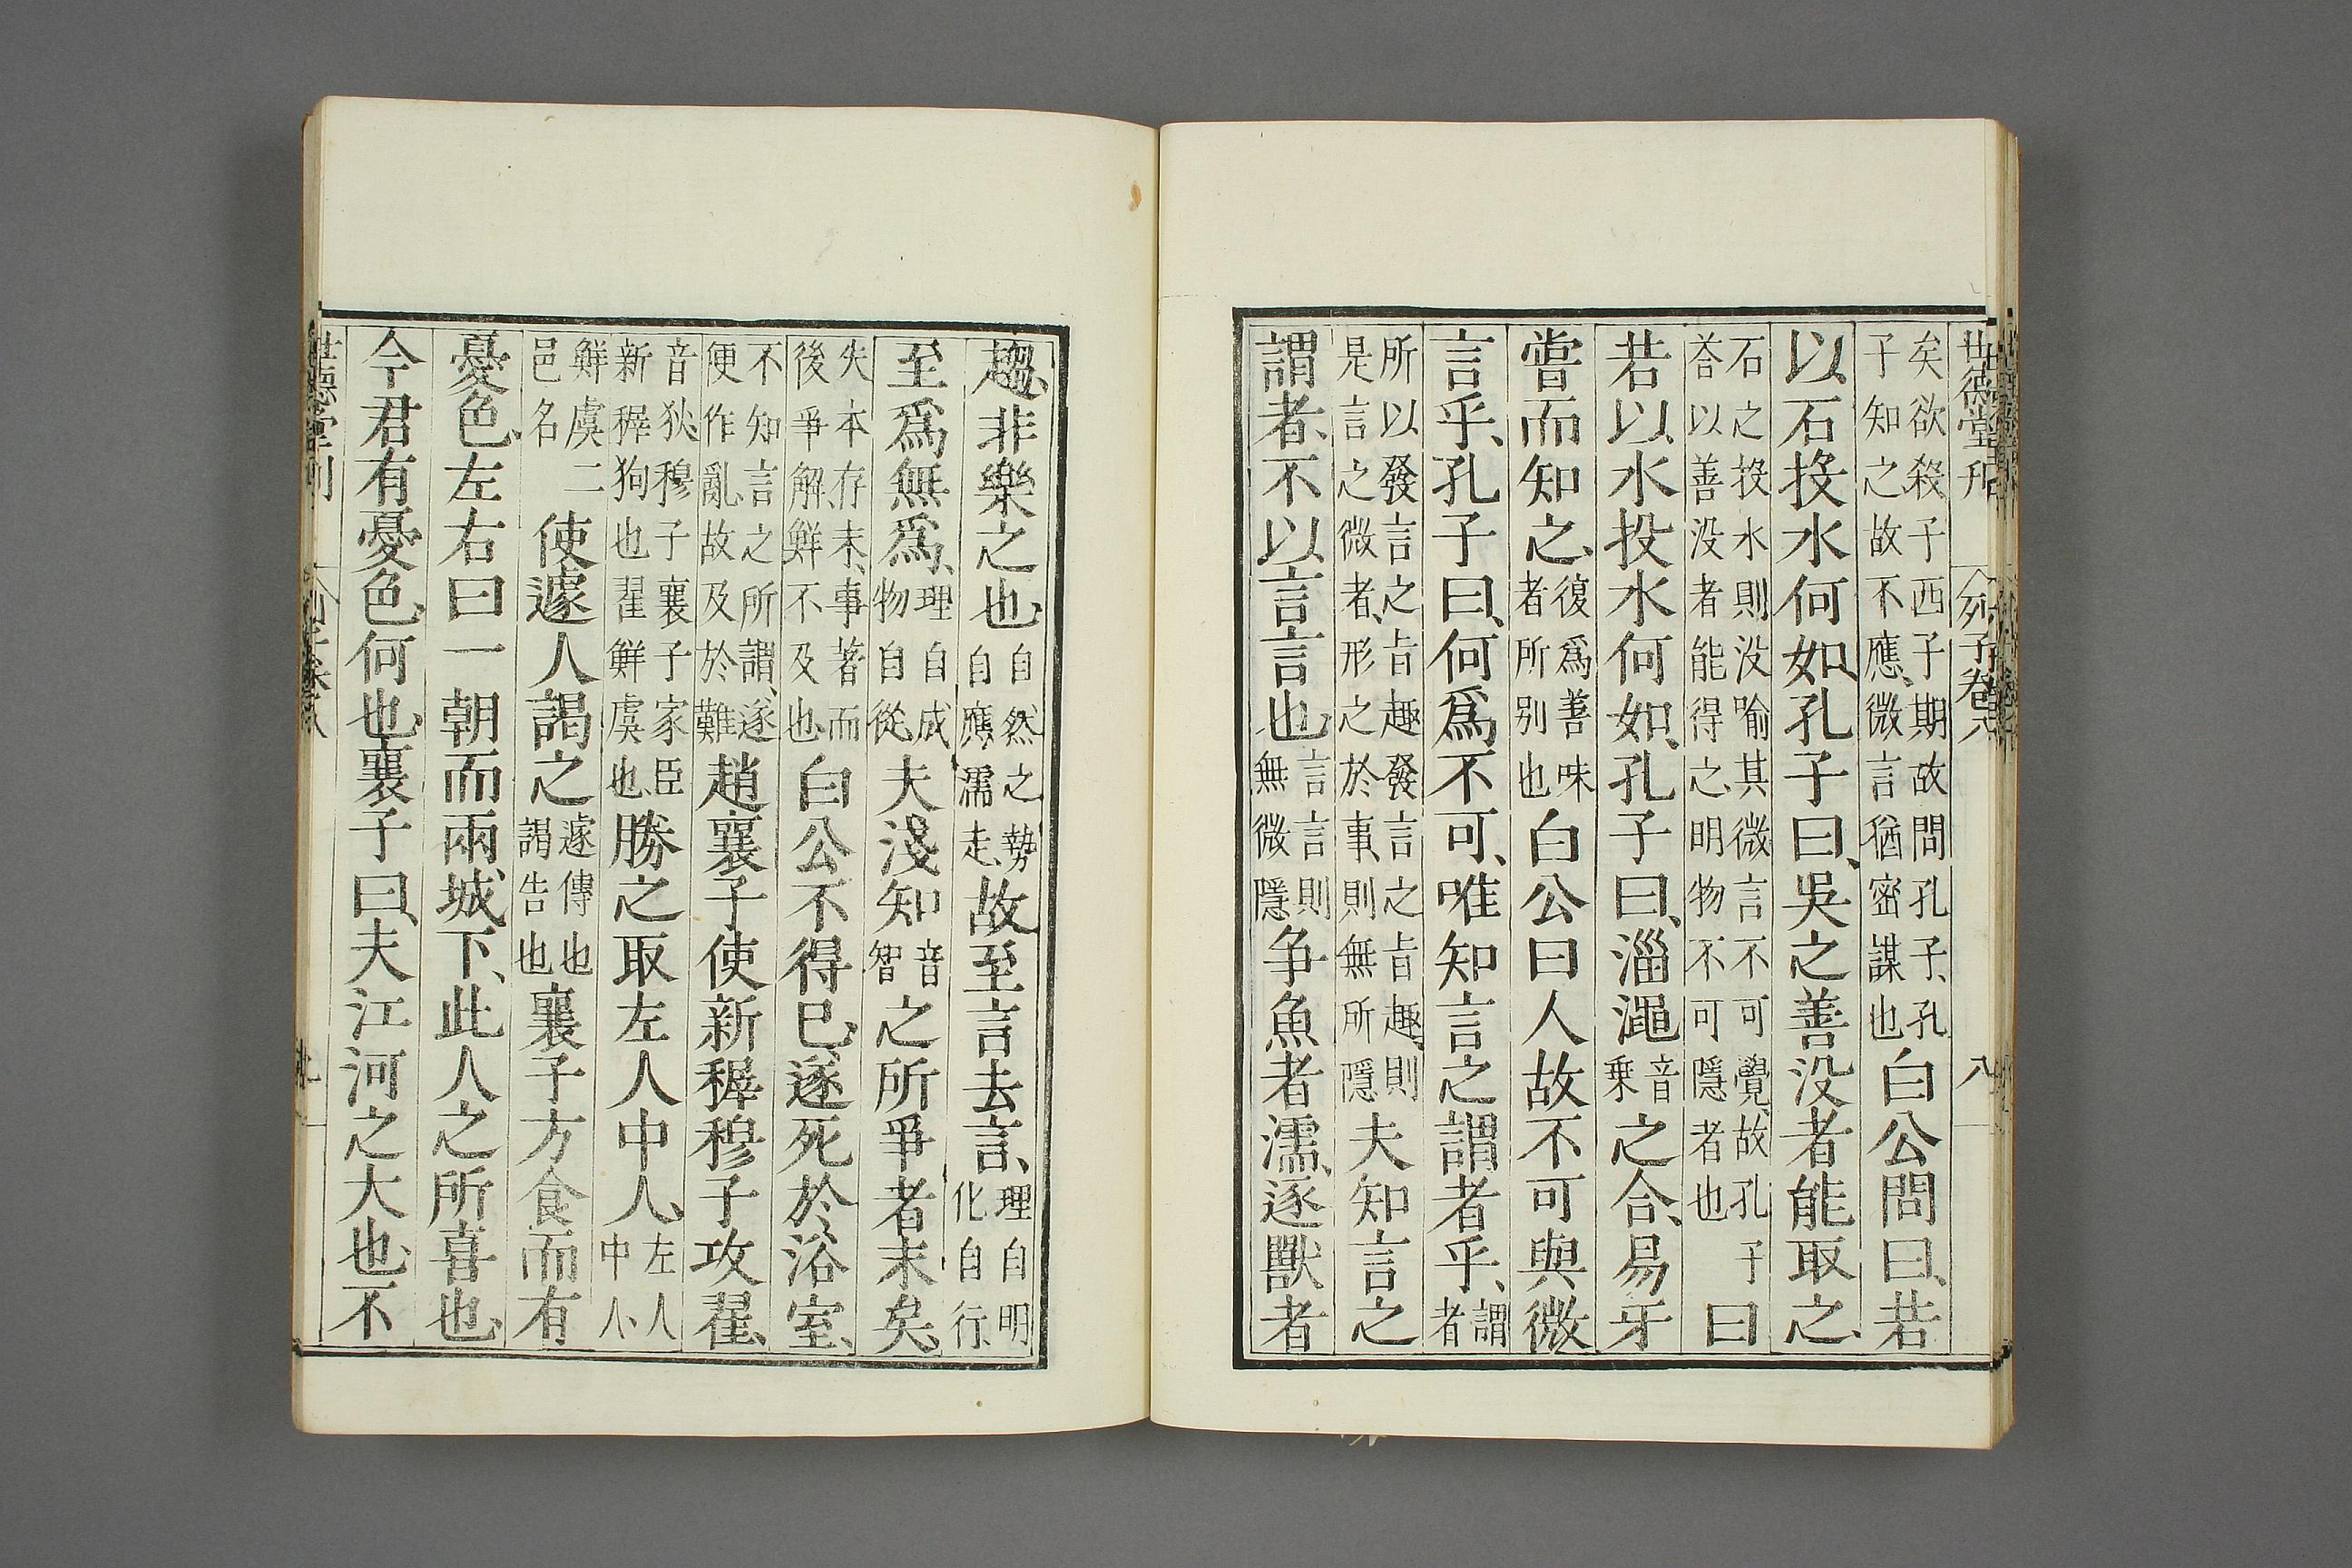 世德堂刊　列子卷八　八
矣欲殺子西子期故問孔子、孔
子知之故不應、微言猶密謀也
白公問曰、若
以石投水何如、孔子曰、吳之善没者能取之、
石之投水則没喻其微言不可覺、故孔子
荅以善没者能得之、明物不可隱者也
曰
若以水投水何如、孔子曰、淄澠
音
乗
之合、易牙
嘗而知之、
復爲善味
者所别也
白公曰人故不可與微
言乎、孔子曰、何爲不可、唯知言之謂者乎、
謂
者
所以發言之㫖趣發言之㫖趣、則
是言之微者、形之於事、則無所隱
夫知言之
謂者、不以言言也
言言則
無微隱
争魚者濡、逐獸者
趨、非樂之也
自然之勢
自應濡走、
故至言去言、
理自明
化自行、
至爲無爲、
理自成
物自從、
夫淺知
音
智
之所爭者末矣、
失本存末、事著而
後爭解、鮮不及也、
白公不得已、遂死於浴室、
不知言之所謂、遂
便作亂、故及於難
趙襄子使新穉穆子攻翟、
音狄、穆子襄子家臣
新穉狗也翟鮮虞也、
勝之取左人中人、
左人
中人、
鮮虞二
邑名
使遽人謁之
遽傳也
謁告也
襄子方食而有
憂色、左右曰一朝而兩城下、此人之所喜也、
今君有憂色、何也、襄子曰、夫江河之大也、不
世德堂刊